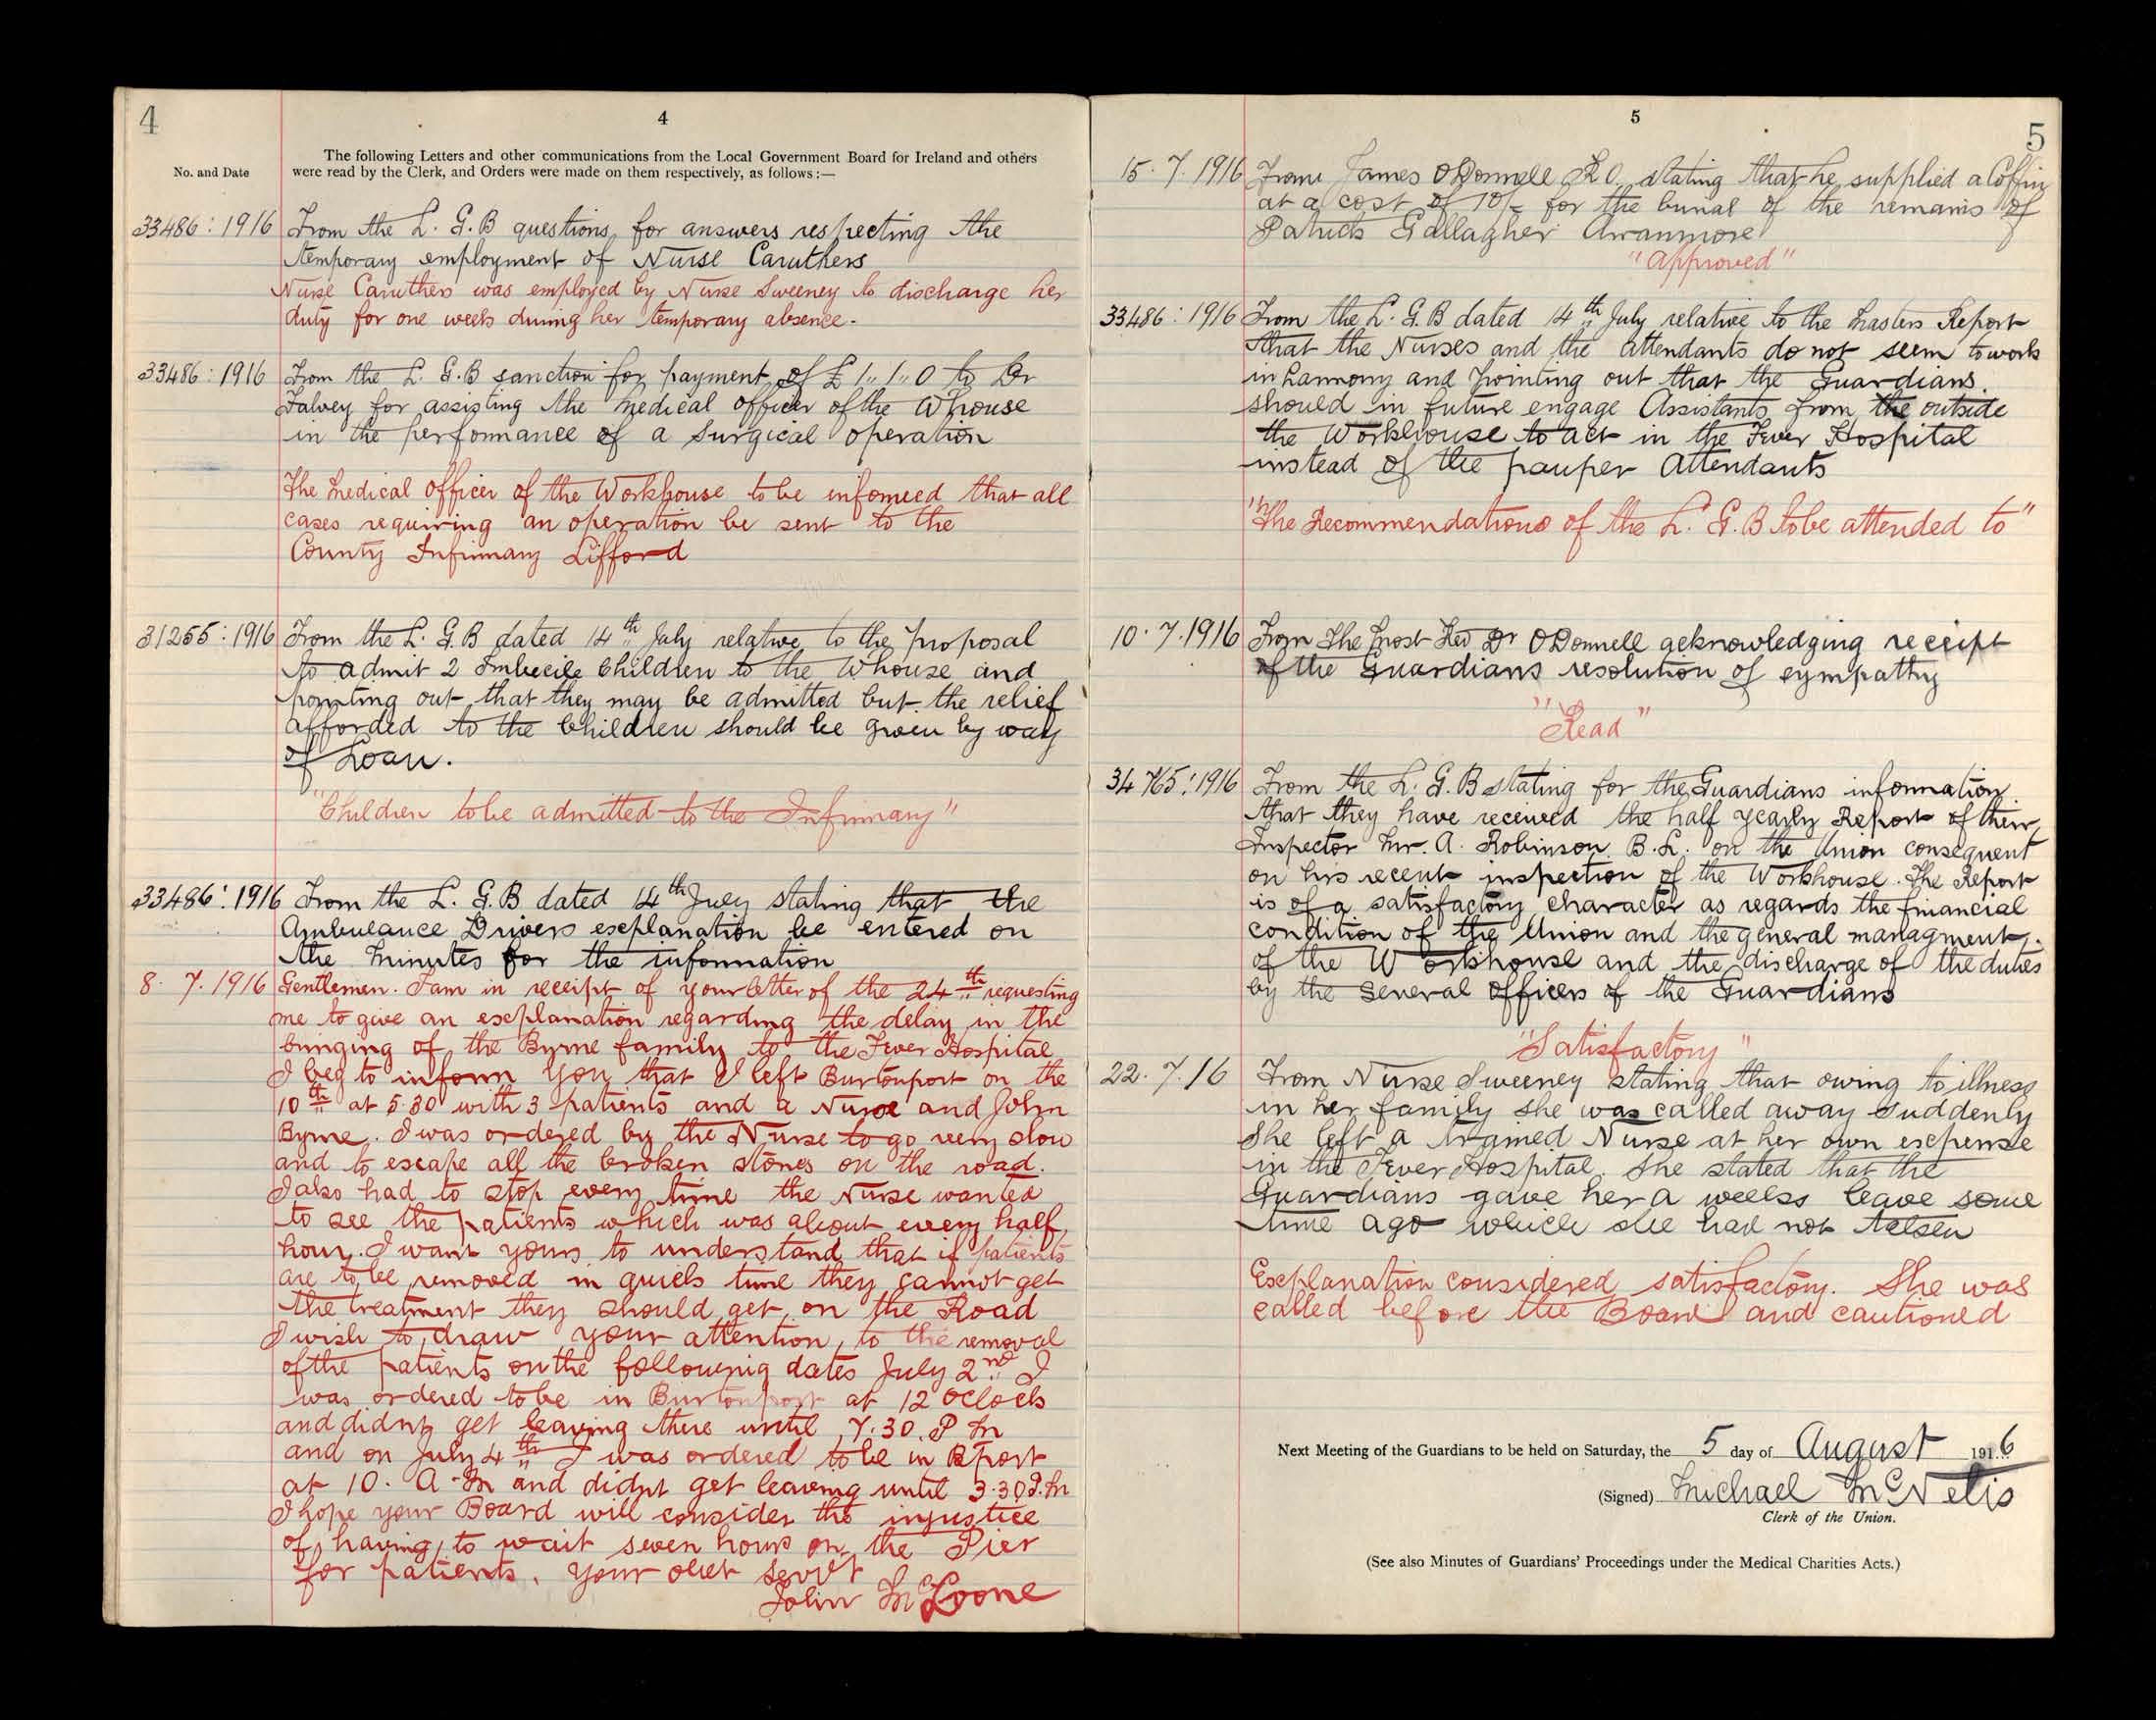 4
4
No. and Date
The following Letters and other communications from the Local Government Board for Ireland and others
were read by the Clerk, and Orders were made on them respectively, as follows :—
33486 : 1916 From the L. G. B questions for answers respecting the
temporary employment of Nurse Caruthers
Nurse Caruthers was employed by Nurse Sweeney to discharge her
duty for one week during her temporary absence.
33486 : 1916 From the L. G. B sanction for payment of £ 1,, 1,, 0 to Dr
Falvey for assisting the Medical Officer of the Whouse
in the performance of a surgical operation
The Medical Officer of the Workhouse to be informed that all
cases requiring an operation be sent to the
County Infirmary Lifford
31255 : 1916 From the L. G. B dated 14th July relative to the proposal
to admit 2 Imbecile Children to the Whouse and
pointing out that they may be admitted but the relief
afforded to the Children should be given by way
of Loan.
"Children to be admitted to the Infirmary"
33486 : 1916 From the L. G. B dated 14th July stating that the
Ambulance Drivers explanation be entered on
the Minutes for the information
8. 7. 1916 Gentlemen. I am in receipt of your letter of the 24th requesting
me to give an explanation regarding the delay in the
bringing of the Byrne family to the Fever Hospital
I beg to inform you that I left Burtonport on the
10th at 5.30 with 3 patients and a Nurse and John
Byrne. I was ordered by the Nurse to go very slow
and to escape all the broken stones on the road.
I also had to stop every time the Nurse wanted
to see the patients which was about every half
hour. I want yours to understand that if patients
are to be removed in quick time they cannot get
the treatment they should get on the Road
I wish to draw your attention to the removal
of the patients on the following dates July 2nd I
was ordered to be in Burtonport at 12 oclock
and didnt get leaving there until 7.30. P M
and on July 4th I was ordered to be in Bport
at 10. A. M and didnt get leaving until 3.30 P. M
I hope your Board will consider the injustice
of having to wait seven hours on the Pier
for patients. Your obet servt
John McLoone
5
5
15. 7. 1916 From James ODonnell R O stating that he supplied a Coffin
at a cost of 10/- for the burial of the remains of
Patrick Gallagher Arranmore
"Approved"
33486 : 1916 From the L. G. B dated 14th July relative to the Masters Report
that the Nurses and the attendants do not seem to work
in harmony and pointing out that the Guardians
should in future engage Assistants from the outside
the Workhouse to act in the Fever Hospital
instead of the pauper Attendants
"The Recommendations of the L. G. B to be attended to"
10. 7. 1916 From The Most Rev Dr ODonnell acknowledging receipt
of the Guardians resolution of sympathy
"Read"
34765 : 1916 From the L. G. B stating for the Guardians information
that they have received the half yearly Report of their
Inspector Mr. A. Robinson B. L. on the Union consequent
on his recent inspection of the Workhouse. The Report
is of a satisfactory character as regards the financial
condition of the Union and the general managment
of the Workhouse and the discharge of the duties
by the several Officers of the Guardians
"Satisfactory"
22. 7. 16 From Nurse Sweeney stating that owing to illness
in her family she was called away suddenly
She left a trained Nurse at her own expense
in the Fever Hospital. She stated that the
Guardians gave her a weeks leave some
time ago which she had not taken
Explanation considered satisfactory. She was
called before the Board and cautioned
Next Meeting of the Guardians to be held on Saturday, the 5 day of August 1916
(Signed) Michael McNelis
Clerk of the Union.
(See also Minutes of Guardians' Proceedings under the Medical Charities Acts.)